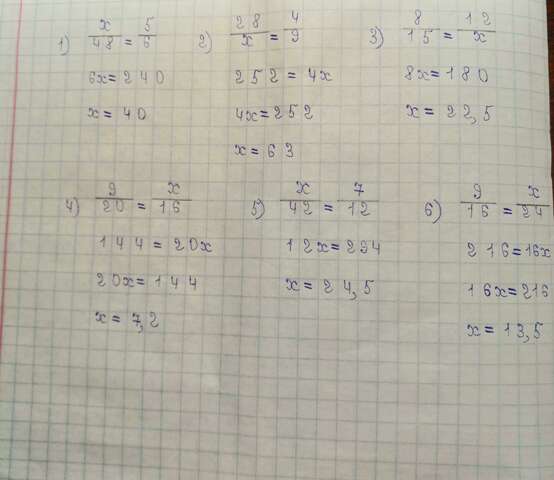 1) x/48 = 5/6
6x=240
x=40
2) 28/x = 4/9
252=4x
4x=252
x=63
3) 8/15 = 12/x
8x=180
x=22,5
4) 9/20 = x/16
144=20x
20x=144
x=7,2
5) x/42 = 7/12
12x=294
x=24,5
6) 9/16 = x/24
216=16x
16x=216
x=13,5